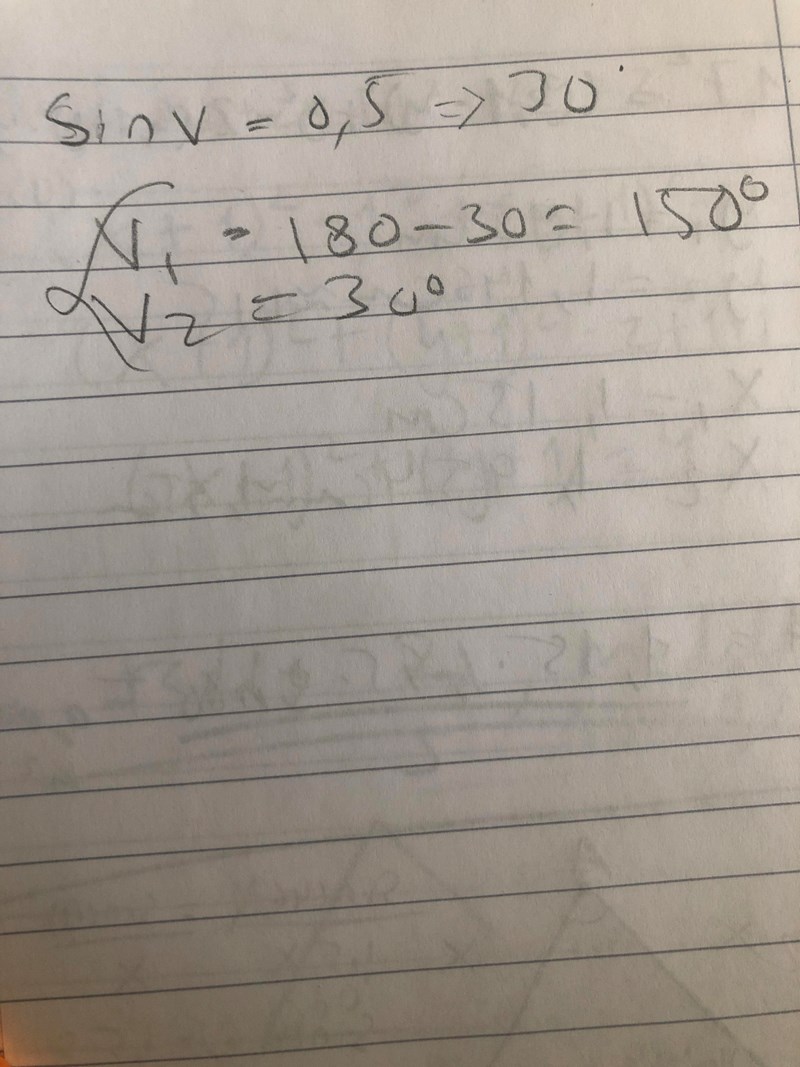 Sin v = 0,5 => 30°
V₁ = 180 - 30 = 150°
V₂ = 30°